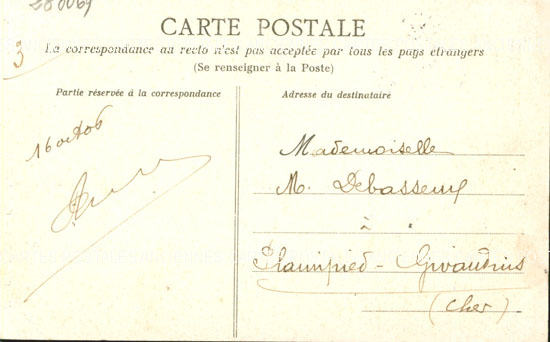 CARTE POSTALE
La correspondance au recto n'est pas acceptée par tous les pays étrangers
(Se renseigner à la Poste)
3
Partie réservée à la correspondance
Adresse du destinataire
16 oct 06
Mademoiselle
M.
à
Plaimpied-Givaudins
(Cher)